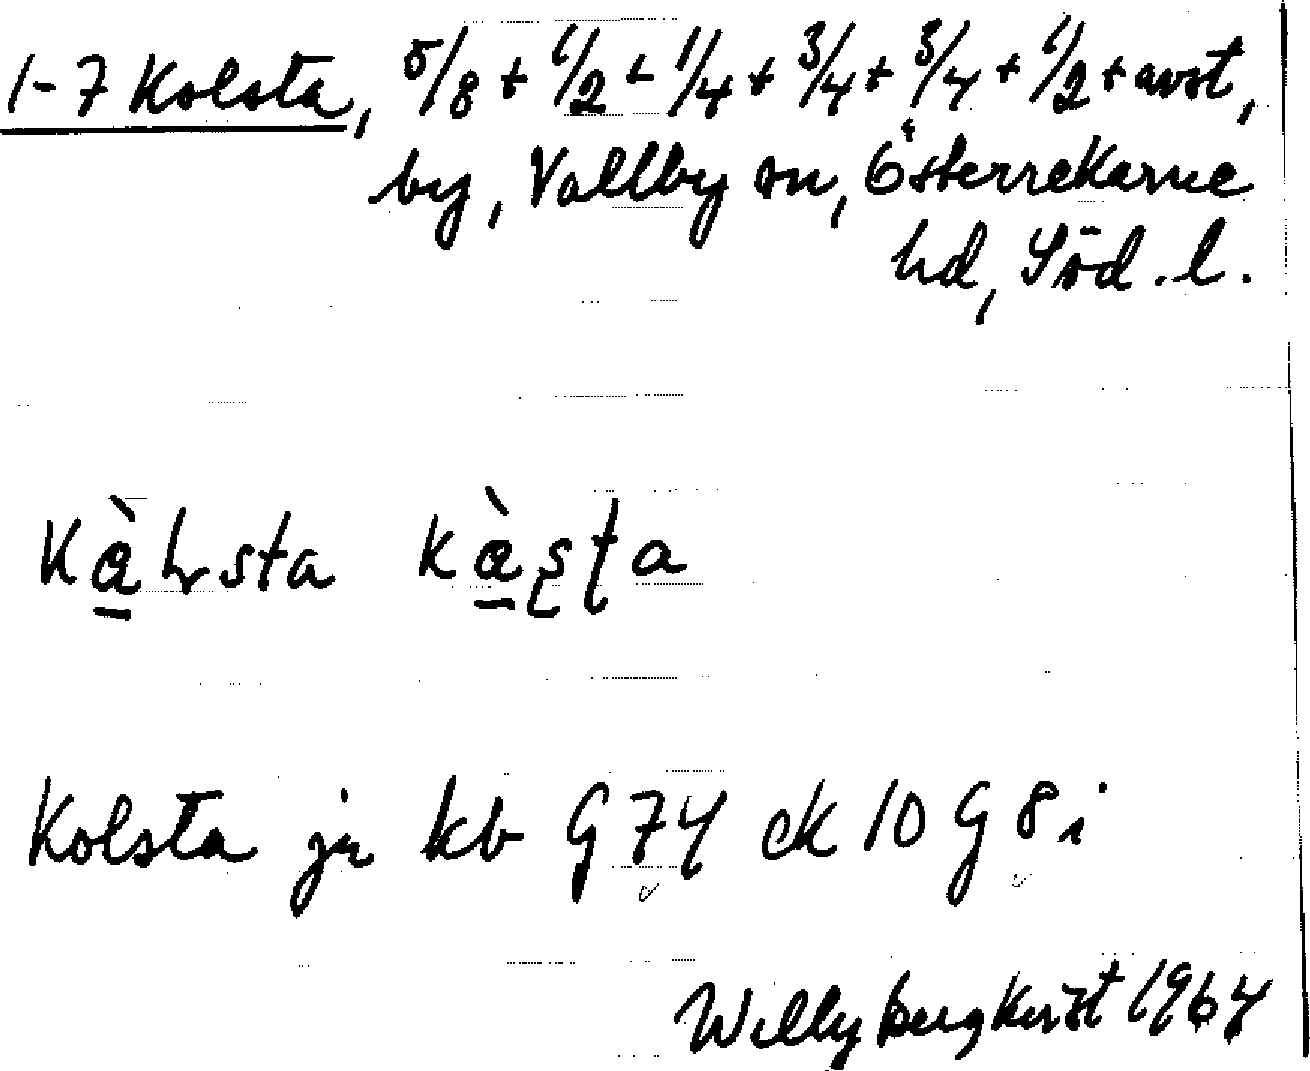 1-7 Kolsta, 5/8 + 1/2 + 1/4 + 3/4 + 3/4 + 1/2 + avst,
by, Vallby sn, Österrekarne
hd, Söd. l.
kà̱hrsta kà̱ʂʈa
Kolsta ju kb G 74 ek 10 G 8 i
Willy Bergkvist 1964